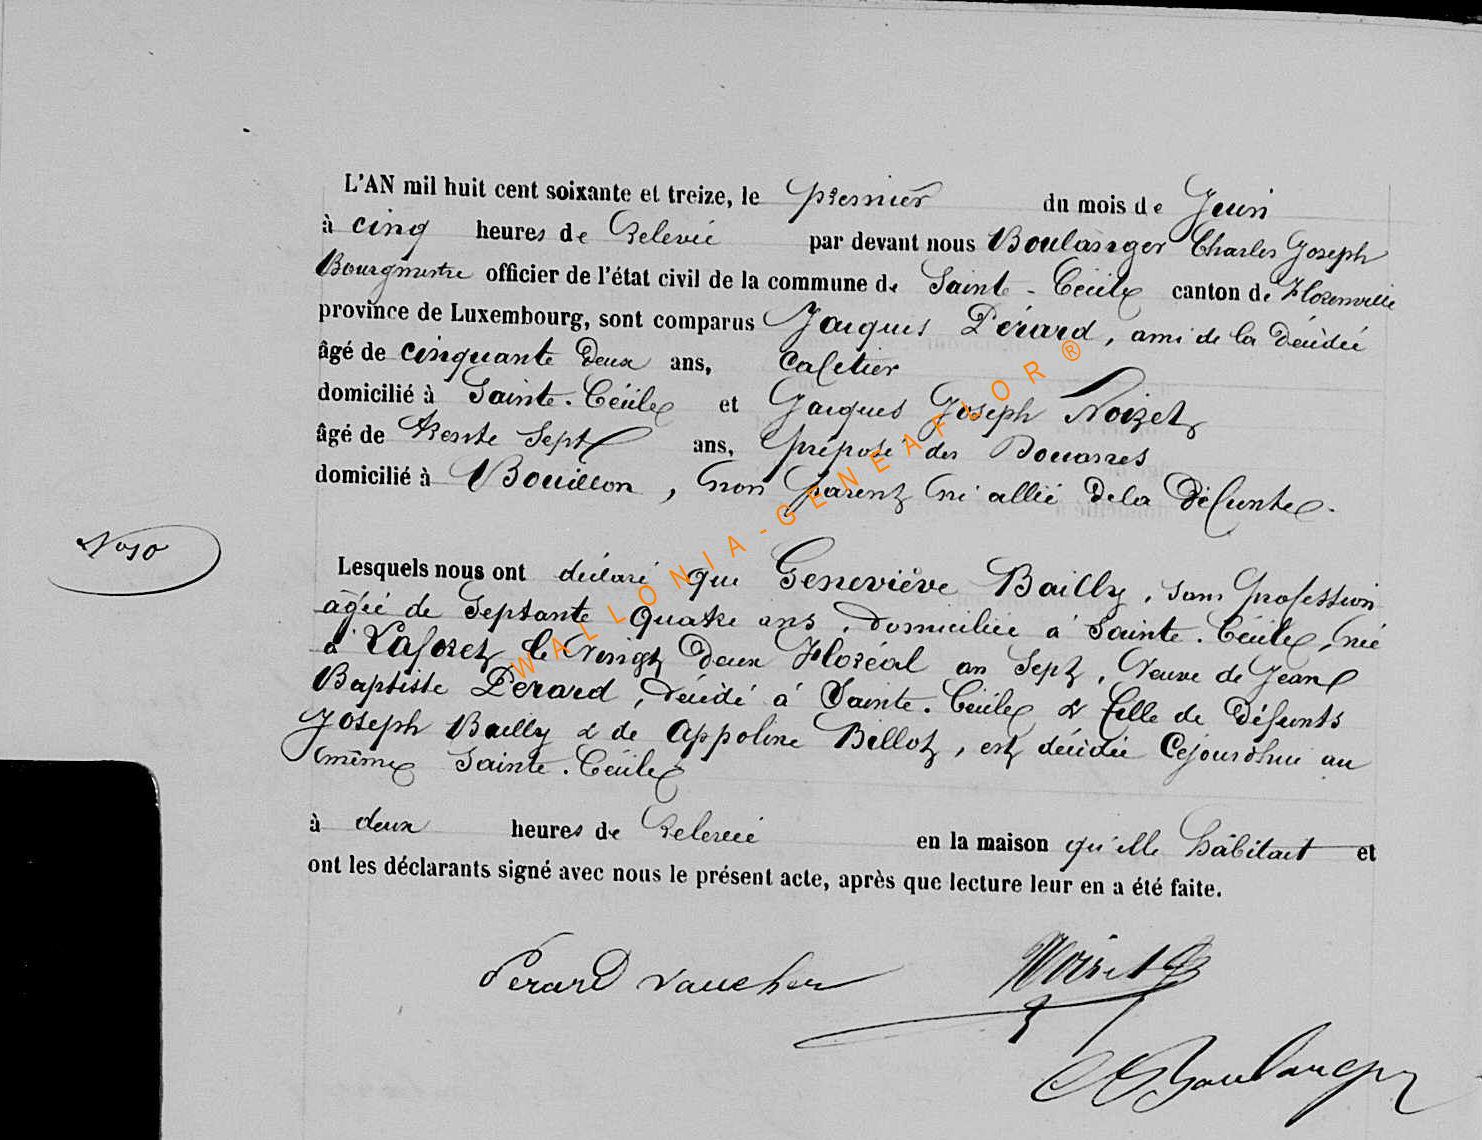 L'AN mil huit cent soixante et treize, le premier du mois de Juin
à cinq heures de Relevée par devant nous Boulanger Charles Joseph
Bourgmestre officier de l'état civil de la commune de Sainte-Cécile canton de Florenville
province de Luxembourg, sont comparus Jacques Pérard, ami de la décédée
âgé de cinquante deux ans, Cafetier
domicilié à Sainte-Cécile et Jacques Joseph Noizet
âgé de trente Sept ans, préposé des Douanes
domicilié à Bouillon, non parent ni allié de la défunte.
N° 10
Lesquels nous ont déclaré que Geneviève Bailly, sans profession
âgée de Septante quatre ans, domiciliée à Sainte-Cécile, née
à Laforet le vingt deux Floréal an Sept, veuve de Jean
Baptiste Perard, décédé à Sainte-Cécile & fille de défunts
Joseph Bailly & de Appoline Billot, est décédée Cejourd'hui au
même Sainte-Cécile
à deux heures de Relevée en la maison qu'elle habitait et
ont les déclarants signé avec nous le présent acte, après que lecture leur en a été faite.
Perard vaucher Noizet
Boulanger
WALLONIA-GENEAFLOR®